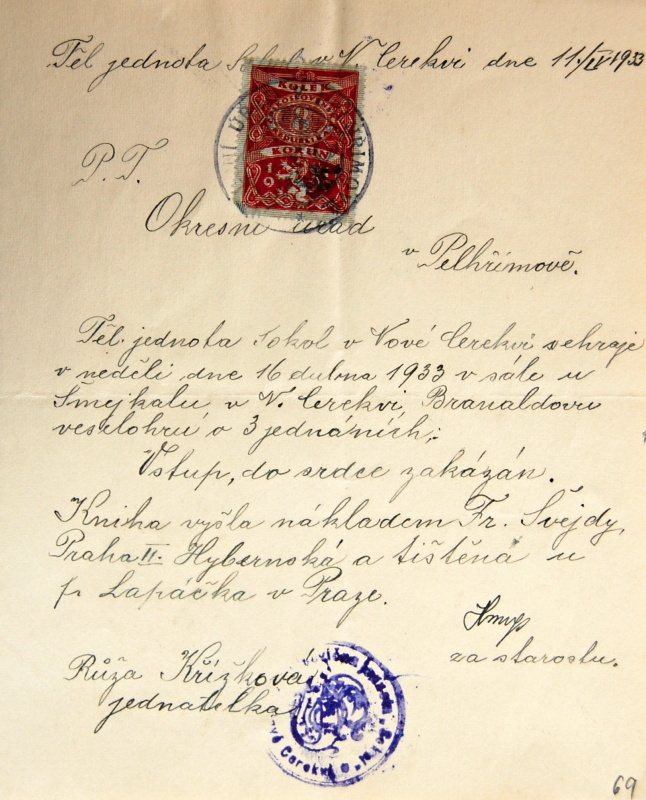 Těl jednota Sokol v N. Cerekvi dne 11./IV 1933
KOLEK
KORUN
19
P. T.
Okresní úřad
v Pelhřimově.
Těl. jednota Sokol v Nové Cerekvi sehraje
v neděli dne 16 dubna 1933 v sále u
Šmejkalu v N. Cerekvi, Branaldovu
veselohru o 3 jednáních:
Vstup, do srdce zakázán.
Kniha vyšla nákladem Fr. Švejdy,
Praha II. Hybernská a tištěna u
fr Lapáčka v Praze.
za starostu.
Růža Křížková
jednatelka
69